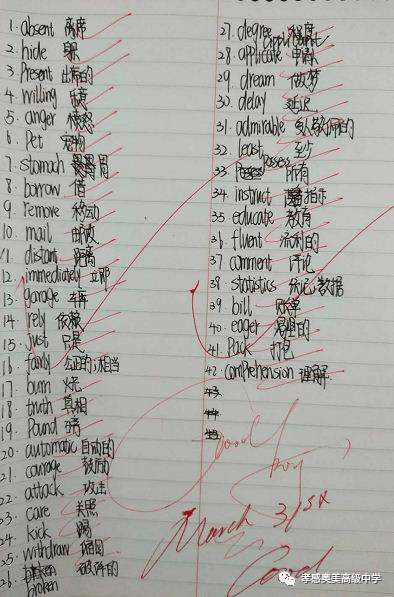 1. absent 离席
2. hide 躲
3. Present 出席的
4. willing 乐意
5. anger 愤怒
6. Pet 宠物
7. stomach 胃
8. borrow 借
9. remove 移动
10. mail 邮政
11. distant 距离
12. immediately 立即
13. garage 车库
14. rely 依赖
15. just 只是
16. fairly 公正的;相当
17. burn 火
18. truth 真相
19. Pound
20. automatic 自动的
21. courage 鼓励
22. attack 攻击
23. care 关照
24. kick 踢
25. withdraw
26. broken 破碎的
27. degree 程度
28. applicate 申请
29. dream 做梦
30. delay 延迟
31. admirable 令人敬佩的
32. least 至少
33. Possess 所有
34. instruct 指示
35. educate 教育
36. fluent 流利的
37. comment 评论
38. statistics 统计数据
39. bill 账单
40. eager 渴望的
41. Pack 打包
42. comprehension 理解
43.
44.
45.
Good
boy
March 31st
Good
孝感奥美高级中学